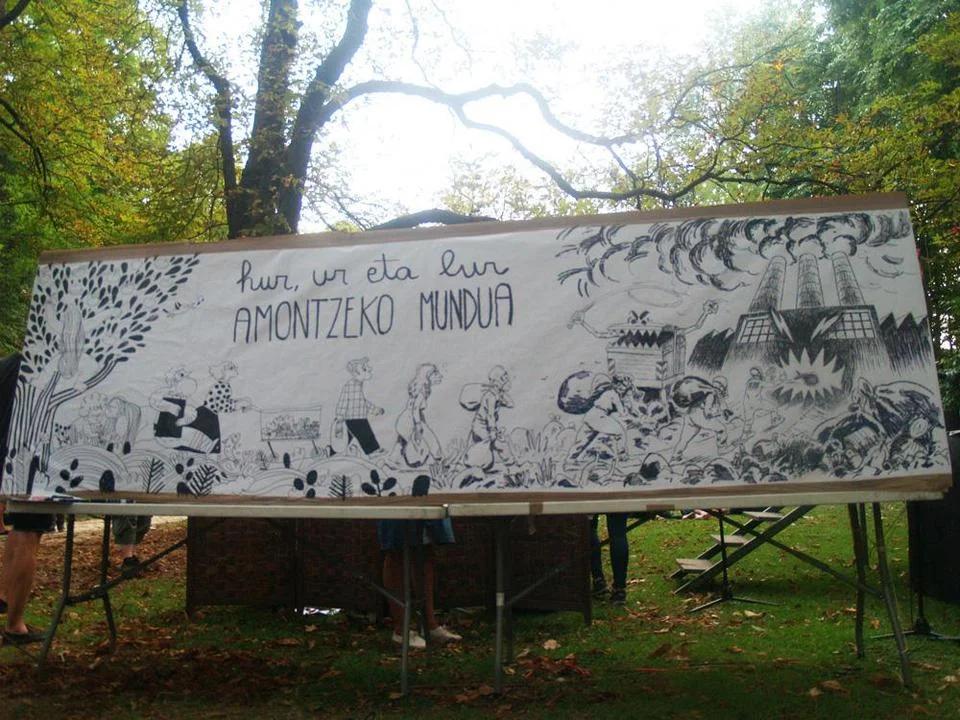 hur, ur eta lur
AMONTZEKO MUNDUA